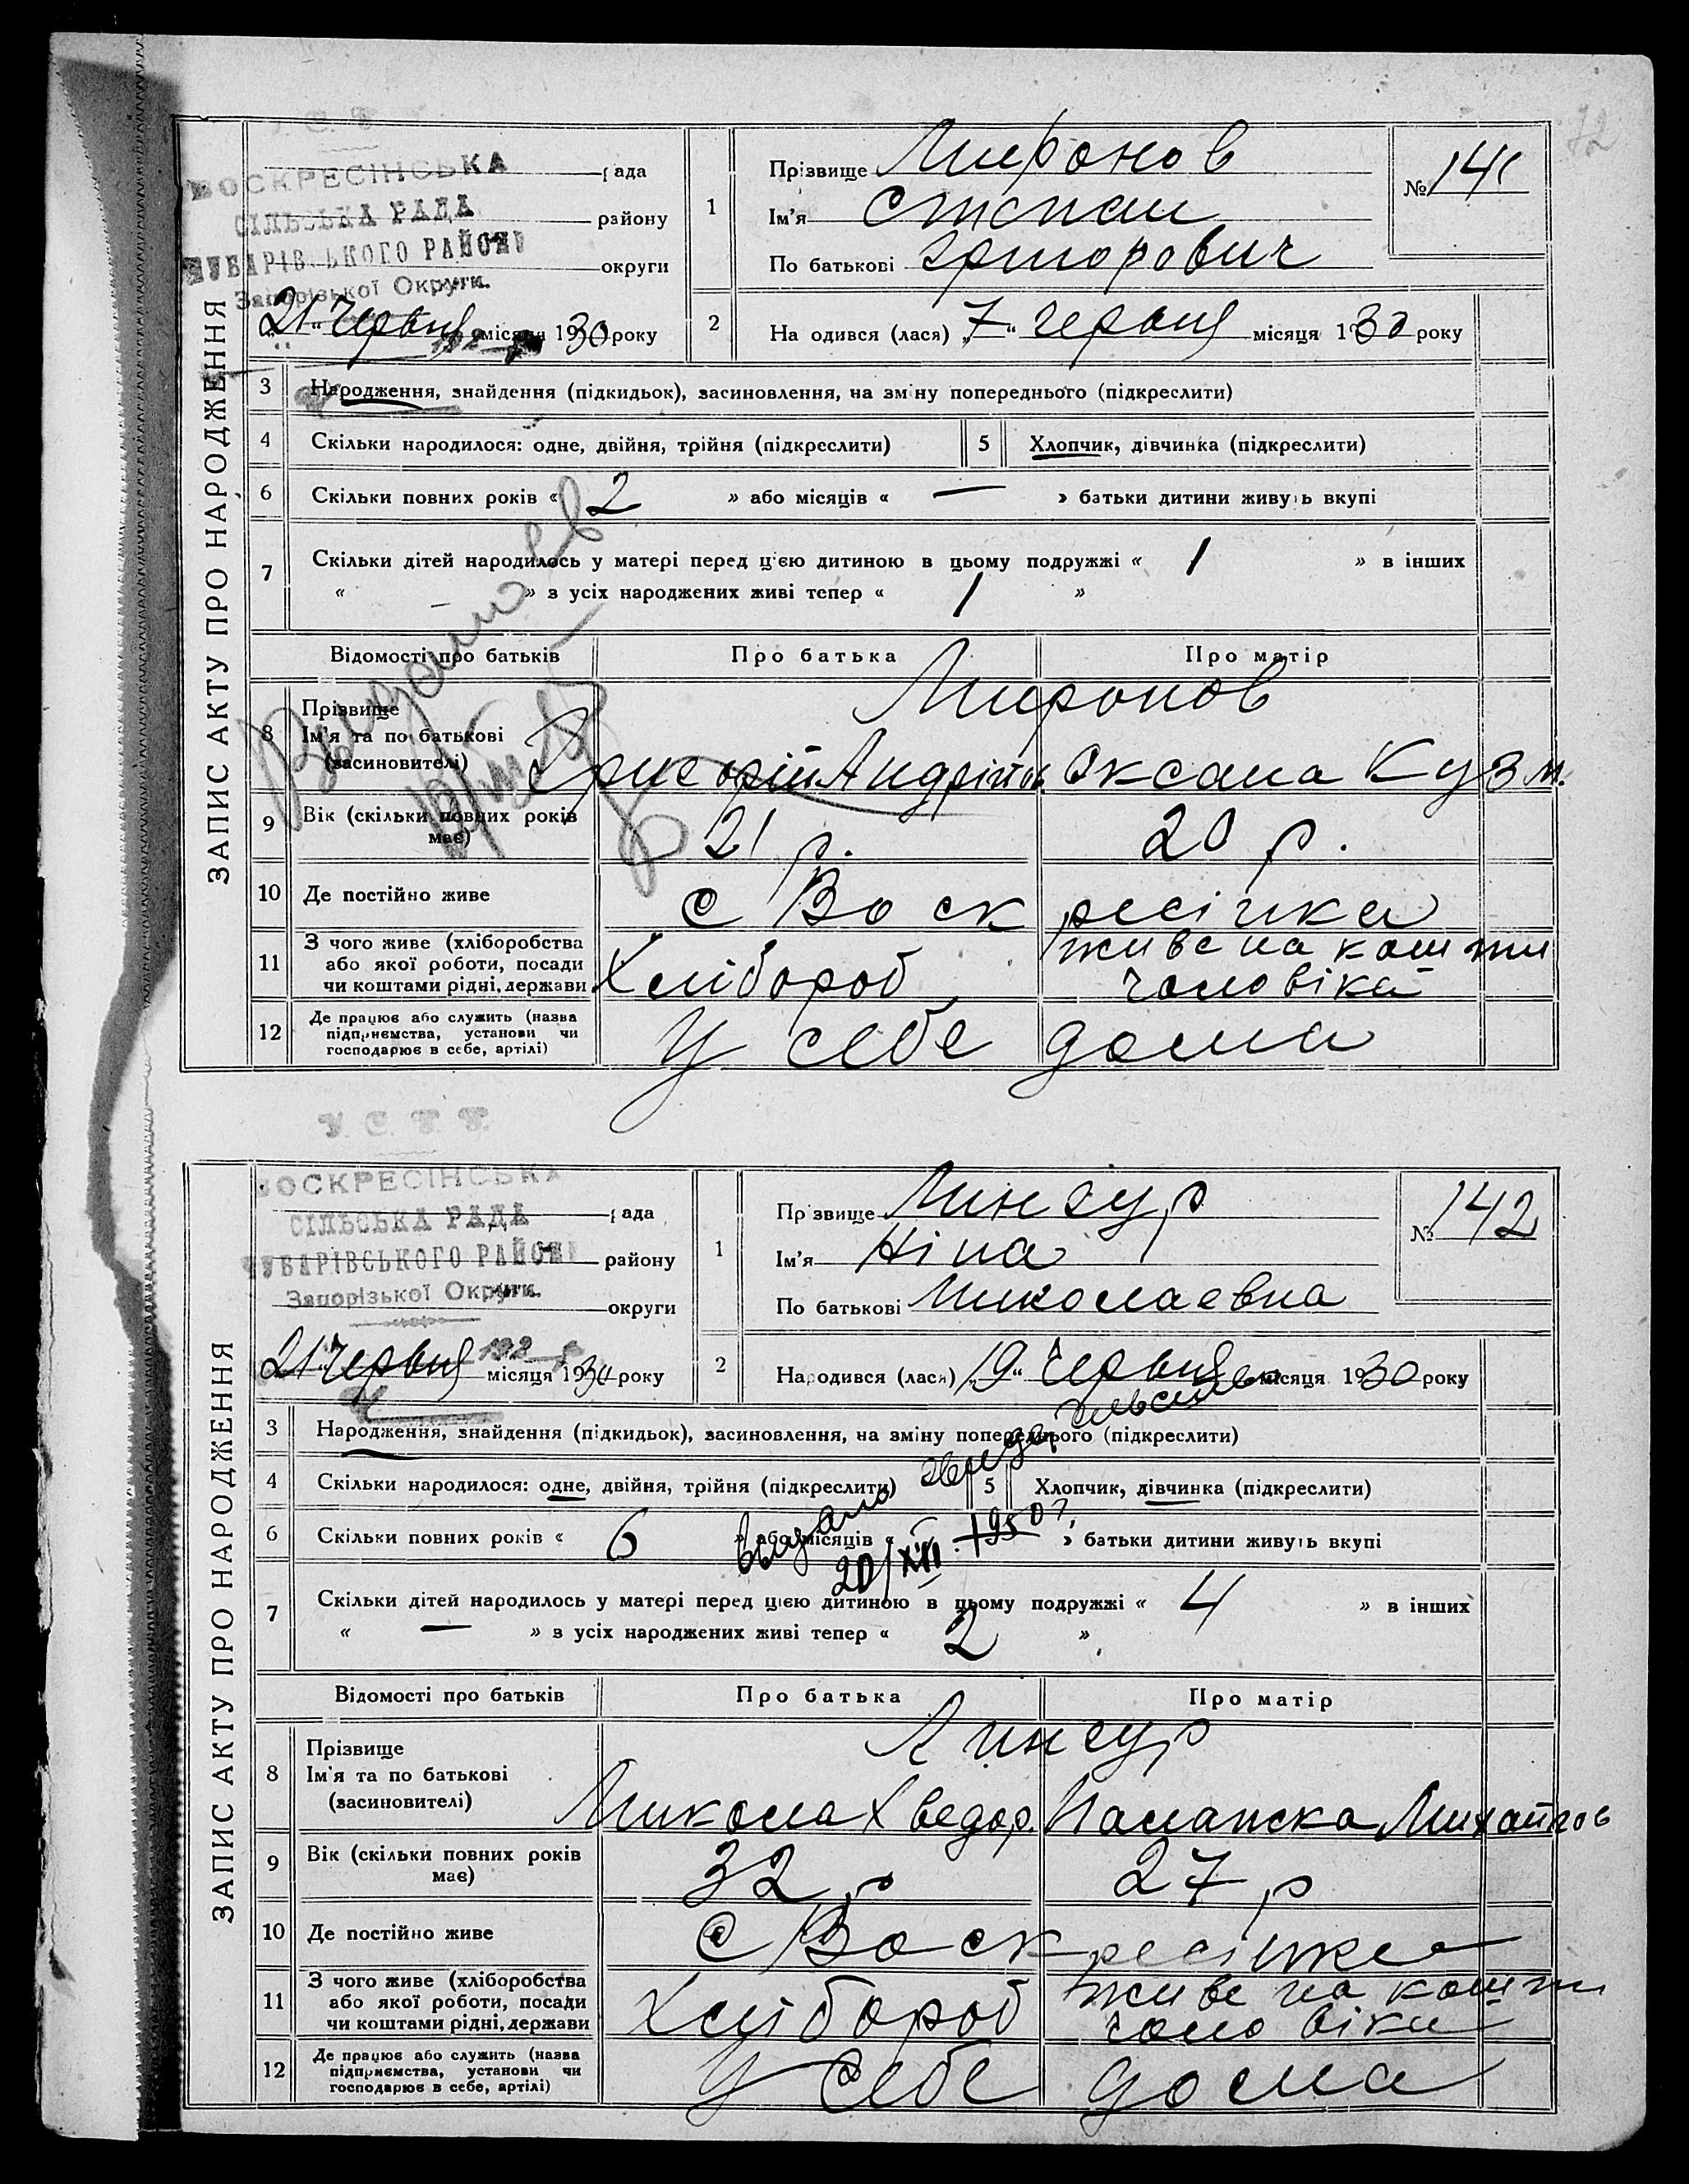 72
ЗАПИС АКТУ ПРО НАРОДЖЕННЯ
У. С. Р. Р.
ВОСКРЕСІНСЬКА
СІЛЬСЬКА РАДА
ЧУБАРІВСЬКОГО РАЙОНУ
Запорізької Округи.
рада
району
округи
21 " Червня місяця 1930 року
1
Прізвище Миронов
Ім'я Степан
По батькові Григорович
№ 141
2
Народився (лася) „7" червня місяця 1930 року
3 Народження, знайдення (підкидьок), засиновлення, на зміну попереднього (підкреслити)
4 Скільки народилося: одне, двійня, трійня (підкреслити) 5 Хлопчик, дівчинка (підкреслити)
6 Скільки повних років « 2 » або місяців « — » батьки дитини живуть вкупі
7 Скільки дітей народилось у матері перед цією дитиною в цьому подружжі « 1 » в інших
« » з усіх народжених живі тепер « 1 »
Відомості про батьків Про батька Про матір
8 Прізвище
Ім'я та по батькові
(засиновителі)
Миронов
Григорій Андрійов. Оксана Кузм.
9 Вік (скільки повних років має) 21 р. 20 р.
10 Де постійно живе с Воскресінка
11 З чого живе (хліборобства
або якої роботи, посади
чи коштами рідні, держави
Хлібороб живе на кошти
чоловіка
12 Де працює або служить (назва
підприємства, установи чи
господарює в себе, артілі)
У себе дома
Выдано
ЗАПИС АКТУ ПРО НАРОДЖЕННЯ
У. С. Р. Р.
ВОСКРЕСІНСЬКА
СІЛЬСЬКА РАДА
ЧУБАРІВСЬКОГО РАЙОНУ
Запорізької Округи.
рада
району
округи
21 " Червня 192 місяця 1930 року
1
Прізвище Лингур
Ім'я Ніна
По батькові Миколаевна
№ 142
2
Народився (лася) „19" Червня місяця 1930 року
3 Народження, знайдення (підкидьок), засиновлення, на зміну попереднього (підкреслити)
4 Скільки народилося: одне, двійня, трійня (підкреслити) 5 Хлопчик, дівчинка (підкреслити)
6 Скільки повних років « 6 » або місяців « » батьки дитини живуть вкупі
выдано
20/XII 1950 г.
7 Скільки дітей народилось у матері перед цією дитиною в цьому подружжі « 4 » в інших
« — » з усіх народжених живі тепер « 2 »
Відомості про батьків Про батька Про матір
8 Прізвище
Ім'я та по батькові
(засиновителі)
Лингур
Микола Хведор. Палажка Михайлов
9 Вік (скільки повних років має) 32 р 27 р
10 Де постійно живе с Воскресінка
11 З чого живе (хліборобства
або якої роботи, посади
чи коштами рідні, держави
Хлібороб живе на кошти
чоловіка
12 Де працює або служить (назва
підприємства, установи чи
господарює в себе, артілі)
У себе дома